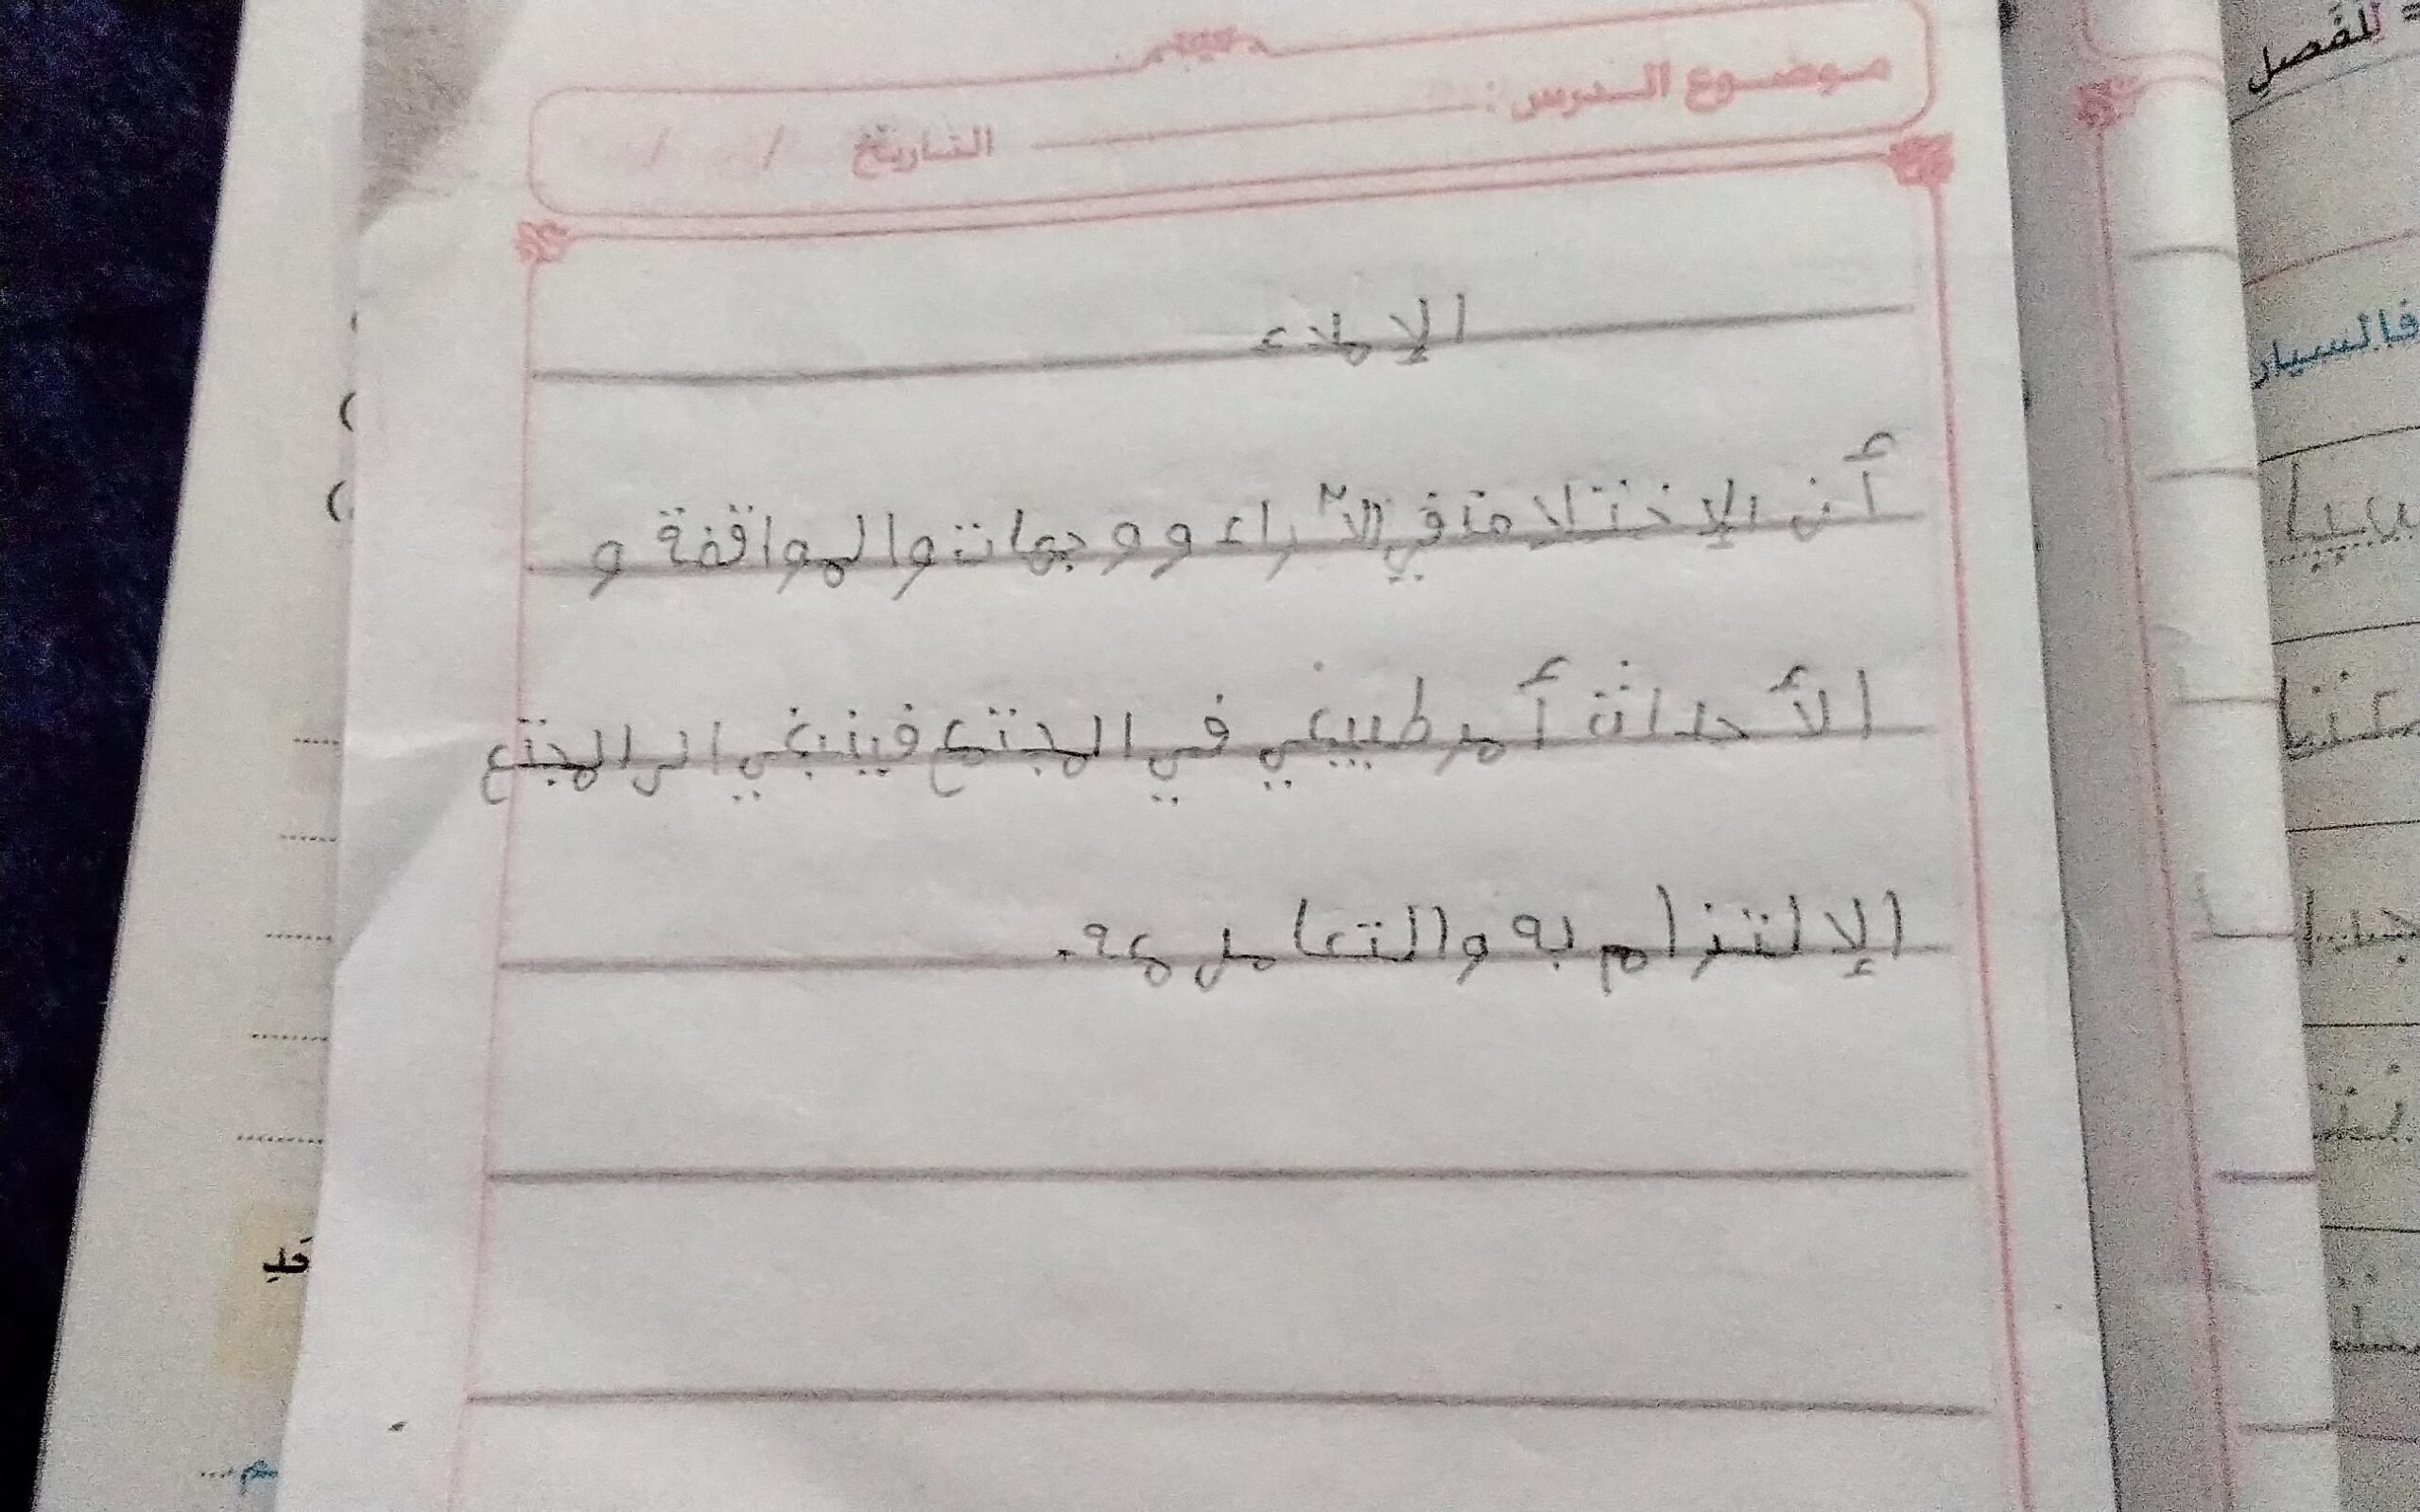 موضوع الدرس: التاريخ / /
الإملاء
أن الإختلاف في الآراء ووجهات والمواقفة و
الأحداث أمر طبيعي في المجتمع فينبغي الى المجتمع
الإلتزام به والتعامل معه.
للمفصل =
فالسيار